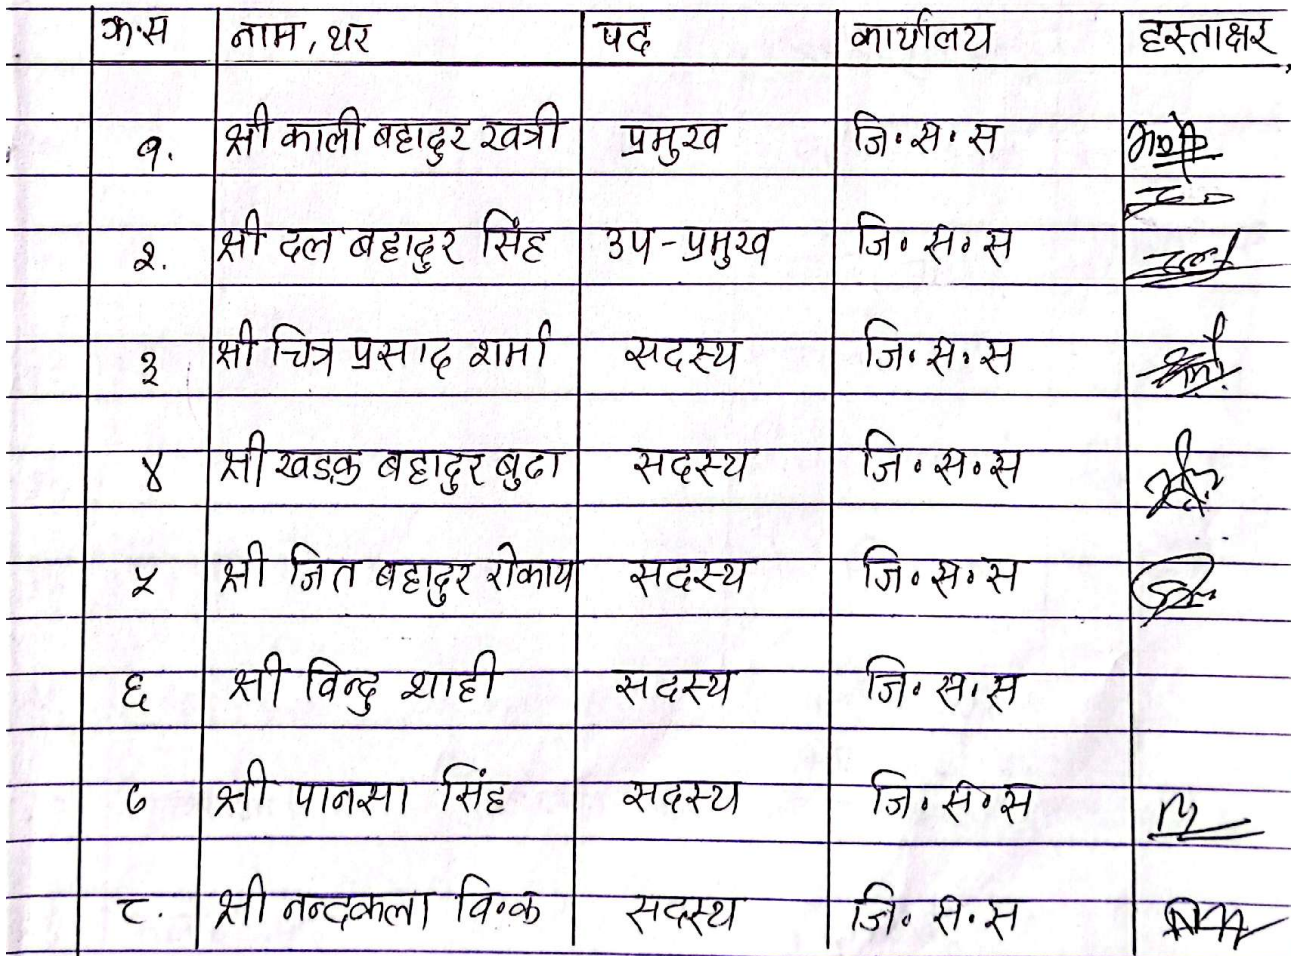 क्र.स नाम, थर पद कार्यालय हस्ताक्षर
१. श्री काली बहादुर खत्री प्रमुख जि.स.स
२. श्री दल बहादुर सिंह उप-प्रमुख जि.स.स
३ श्री चित्र प्रसाद शर्मा सदस्य जि.स.स
४ श्री खडक बहादुर बुढा सदस्य जि.स.स
५ श्री जित बहादुर रोकाय सदस्य जि.स.स
६ श्री विन्दु शाही सदस्य जि.स.स
७ श्री पानसा सिंह सदस्य जि.स.स
८. श्री नन्दकला वि.क सदस्य जि.स.स